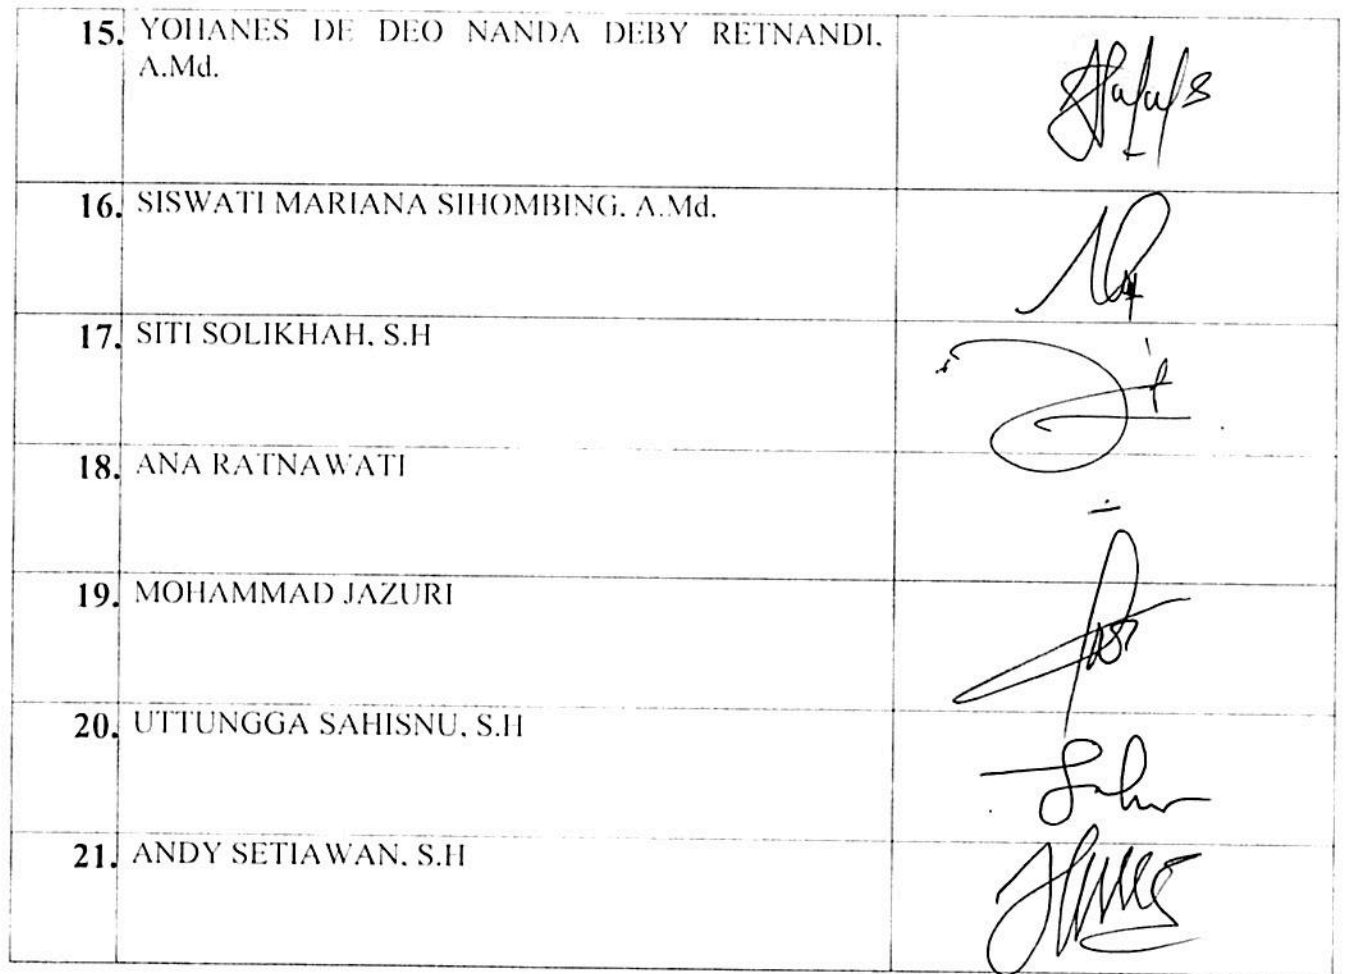 15. YOHANES DE DEO NANDA DEBY RETNANDI.
A.Md.
16. SISWATI MARIANA SIHOMBING. A.Md.
17. SITI SOLIKHAH. S.H
18. ANA RATNAWATI
19. MOHAMMAD JAZURI
20. UTTUNGGA SAHISNU. S.H
21. ANDY SETIAWAN. S.H